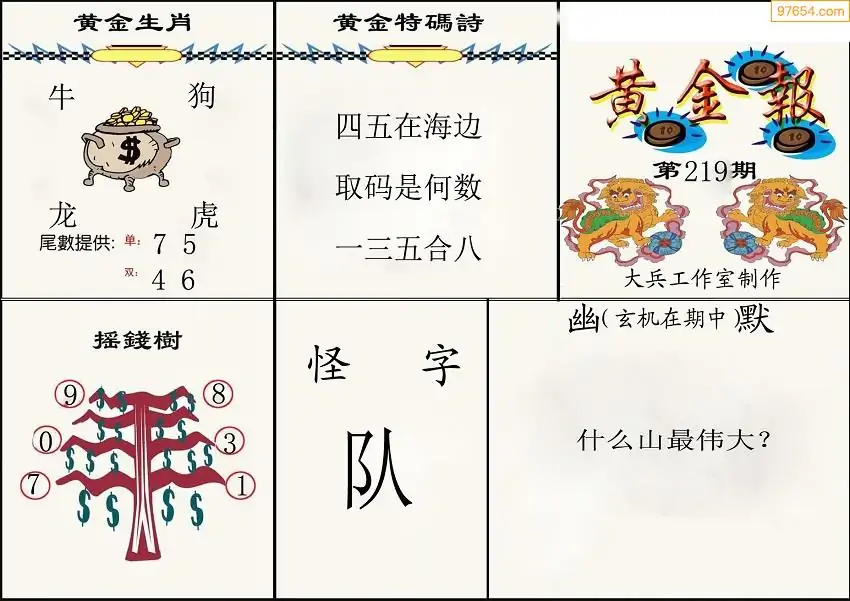 97654.com
黄金生肖
牛 狗
$
龙 虎
尾數提供: 单: 7 5
双: 4 6
黄金特碼詩
四五在海边
取码是何数
一三五合八
黄金報
10
10
10
第219期
大兵工作室制作
摇錢樹
9 8
$ $ $ $
$ $ $ $
0 3
$ $ $ $
7 1
$ $ $ $
怪 字
队
幽(玄机在期中)默
什么山最伟大?